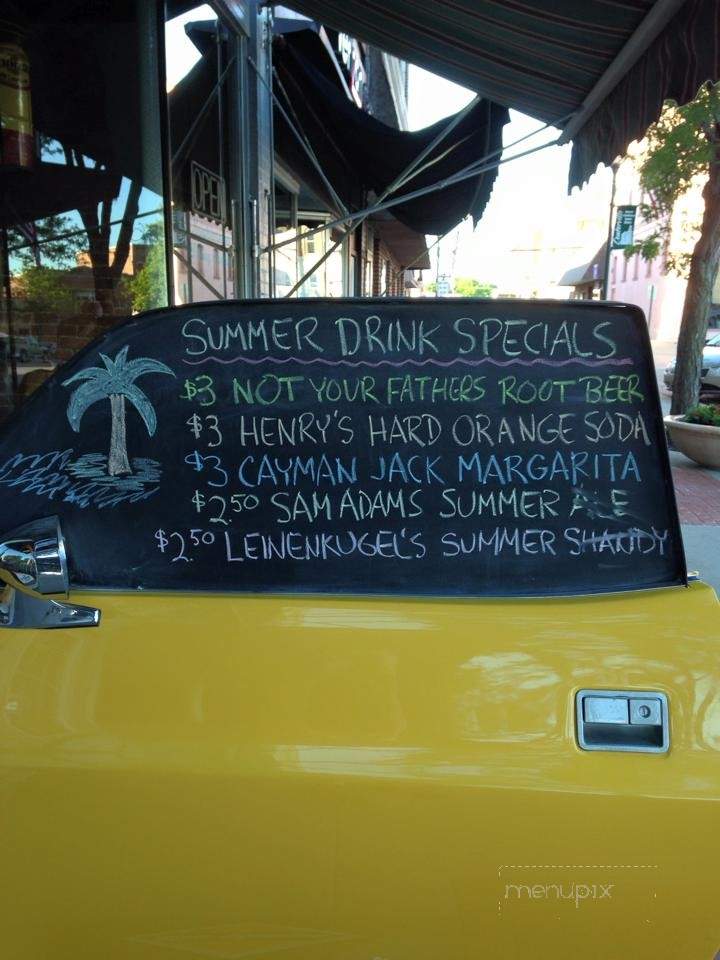 OPEN
SUMMER DRINK SPECIALS
$3 NOT YOUR FATHERS ROOT BEER
$3 HENRY'S HARD ORANGE SODA
$3 CAYMAN JACK MARGARITA
$2.50 SAM ADAMS SUMMER ALE
$2.50 LEINENKUGEL'S SUMMER SHANDY
menupix